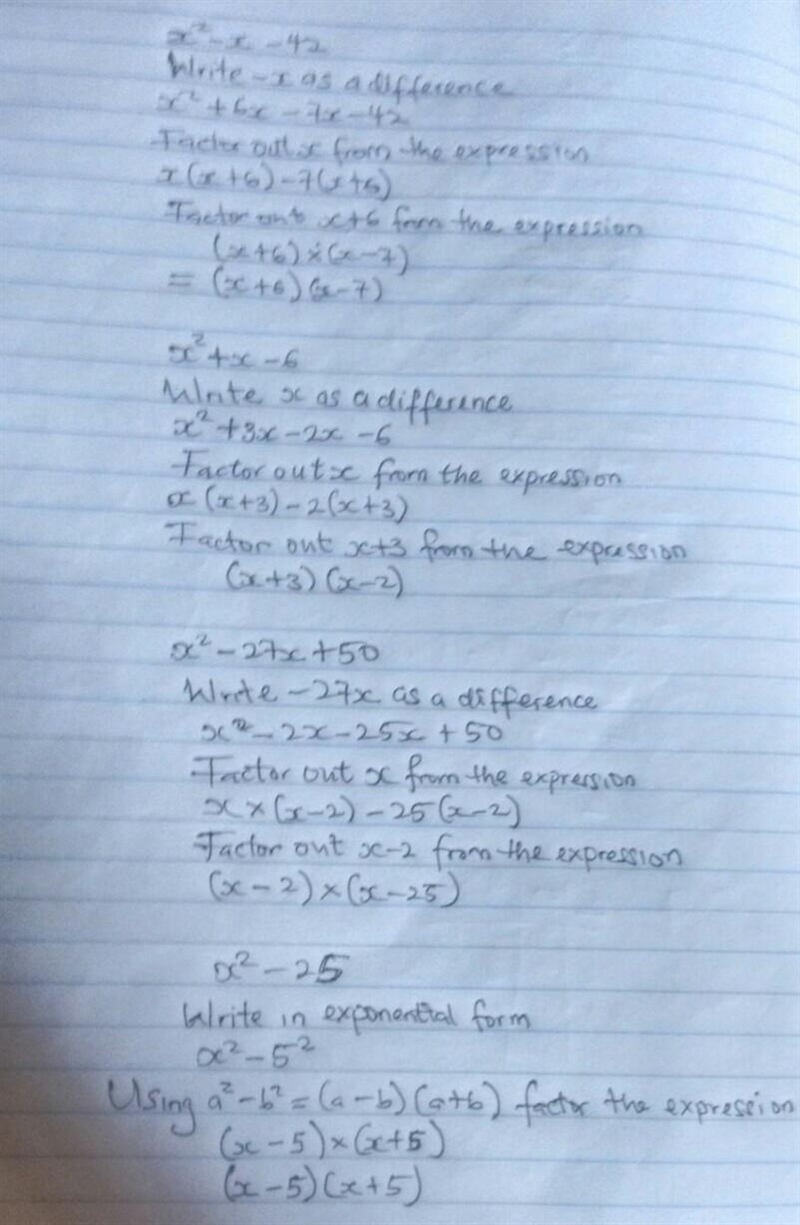 x² - x - 42
Write -x as a difference
x² + 6x - 7x - 42
Factor out x from the expression
x(x+6) - 7(x+6)
Factor out x+6 from the expression
(x+6) × (x-7)
= (x+6)(x-7)
x² + x - 6
Write x as a difference
x² + 3x - 2x - 6
Factor out x from the expression
x(x+3) - 2(x+3)
Factor out x+3 from the expression
(x+3)(x-2)
x² - 27x + 50
Write -27x as a difference
x² - 2x - 25x + 50
Factor out x from the expression
x × (x-2) - 25(x-2)
Factor out x-2 from the expression
(x-2) × (x-25)
x² - 25
Write in exponential form
x² - 5²
Using a² - b² = (a-b)(a+b) factor the expression
(x-5) × (x+5)
(x-5)(x+5)